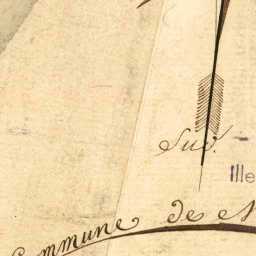 Sud.
Ille
Commune de